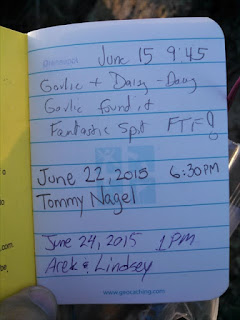 June 15 9:45
Garlic + Daisy - Dawg
Garlic found it
Fantastic Spot FTF!
June 22, 2015 6:30PM
Tommy Nagel
June 24, 2015 1PM
Arek & Lindsey
www.geocaching.com
.com
be,